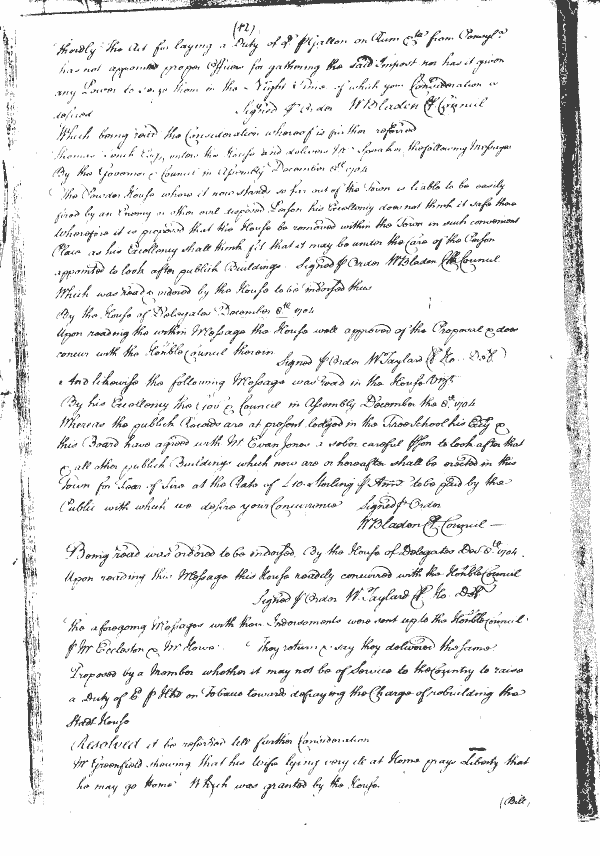 (42)
Thirdly the Act for laying a Duty of d p Gallon on Rum &ca from Pensylva
has not appointed proper Officers for gathering the said Impost nor has it given
any Power to seize them in the Night Time of which your Consideration is
desired Signed p Order W Bladen Cl Council
Which being read the Consideration whereof is further referred
Thomas Esqr enters the House and delivers Mr Speaker the following Message
By the Governor & Council in Assembly December 8th 1704
The Powder House where it now stands so far out of the Town is liable to be easily
fired by an Enemy or other evil disposed Person his Excellency does not think it safe there
Wherefore it is proposed that the House be removed within the Town in such convenient
Place as his Excellency shall think fit that it may be under the Care of the Person
appointed to look after publick Buildings. Signed p Order W Bladen Cl Council
Which was read & ordered by the House to be endorsed thus
By the House of Delegates December 8th 1704
Upon reading the within Message the House well approved of the Proposal & does
concur with the Honble Council therein
Signed p Order W Taylard Cl Ho. Del
And likewise the following Message was read in the House Vizt
By his Excellency the Govr & Council in Assembly December the 8th 1704
Whereas the publick Records are at present lodged in the Free School his Excy &
this Board have agreed with Mr Evan Jones a sober careful pson to look after that
& all other publick Buildings which now are or hereafter shall be erected in this
Town for Fear of Fire at the Rate of £10 Sterling p Ann to be paid by the
Publick with which we desire your Concurrence Signed p Order
W Bladen Cl Council
Being read was ordered to be endorsed. By the House of Delegates Decr 8th 1704.
Upon reading this Message this House readily concurred with the Honble Council
Signed p Order W Taylard Cl Ho. Del
The aforegoing Messages with their Endorsements were sent up to the Honble Council
p Mr Eccleston & Mr Howe. They return & say they delivered the same
Proposed by a Member whether it may not be of Service to the Country to raise
a Duty of p Hhd on Tobacco towards defraying the Charge of rebuilding the
Stadt House
Resolved it be referred till further Consideration
Mr Greenfield shewing that his Wife lying very ill at Home prays Liberty that
he may go Home Which was granted by the House.
(Bill